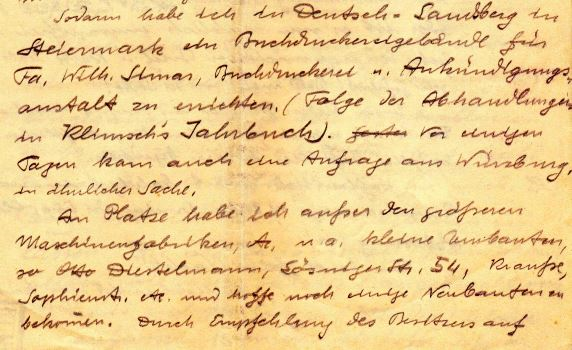 Sodann habe ich in Deutsch-Landsberg in
Steiermark ein Buchdruckereigebäude für
Fa. Wilh. Simar, Buchdruckerei u. Ankündigungs-
anstalt zu errichten. (Folge der Abhandlungen
in Klimsch's Jahrbuch). Vor einigen
Tagen kam auch eine Anfrage aus Würzburg,
in ähnlicher Sache.
Am Platze habe ich außer den größeren
Maschinenfabriken, etc. u. a. kleine Umbauten,
so Otto Diestelmann, Lösnigerstr. 54, Krause,
Sophienstr. etc. und hoffe noch einige Neubauten zu
bekommen. Durch Empfehlung des Besitzers auf